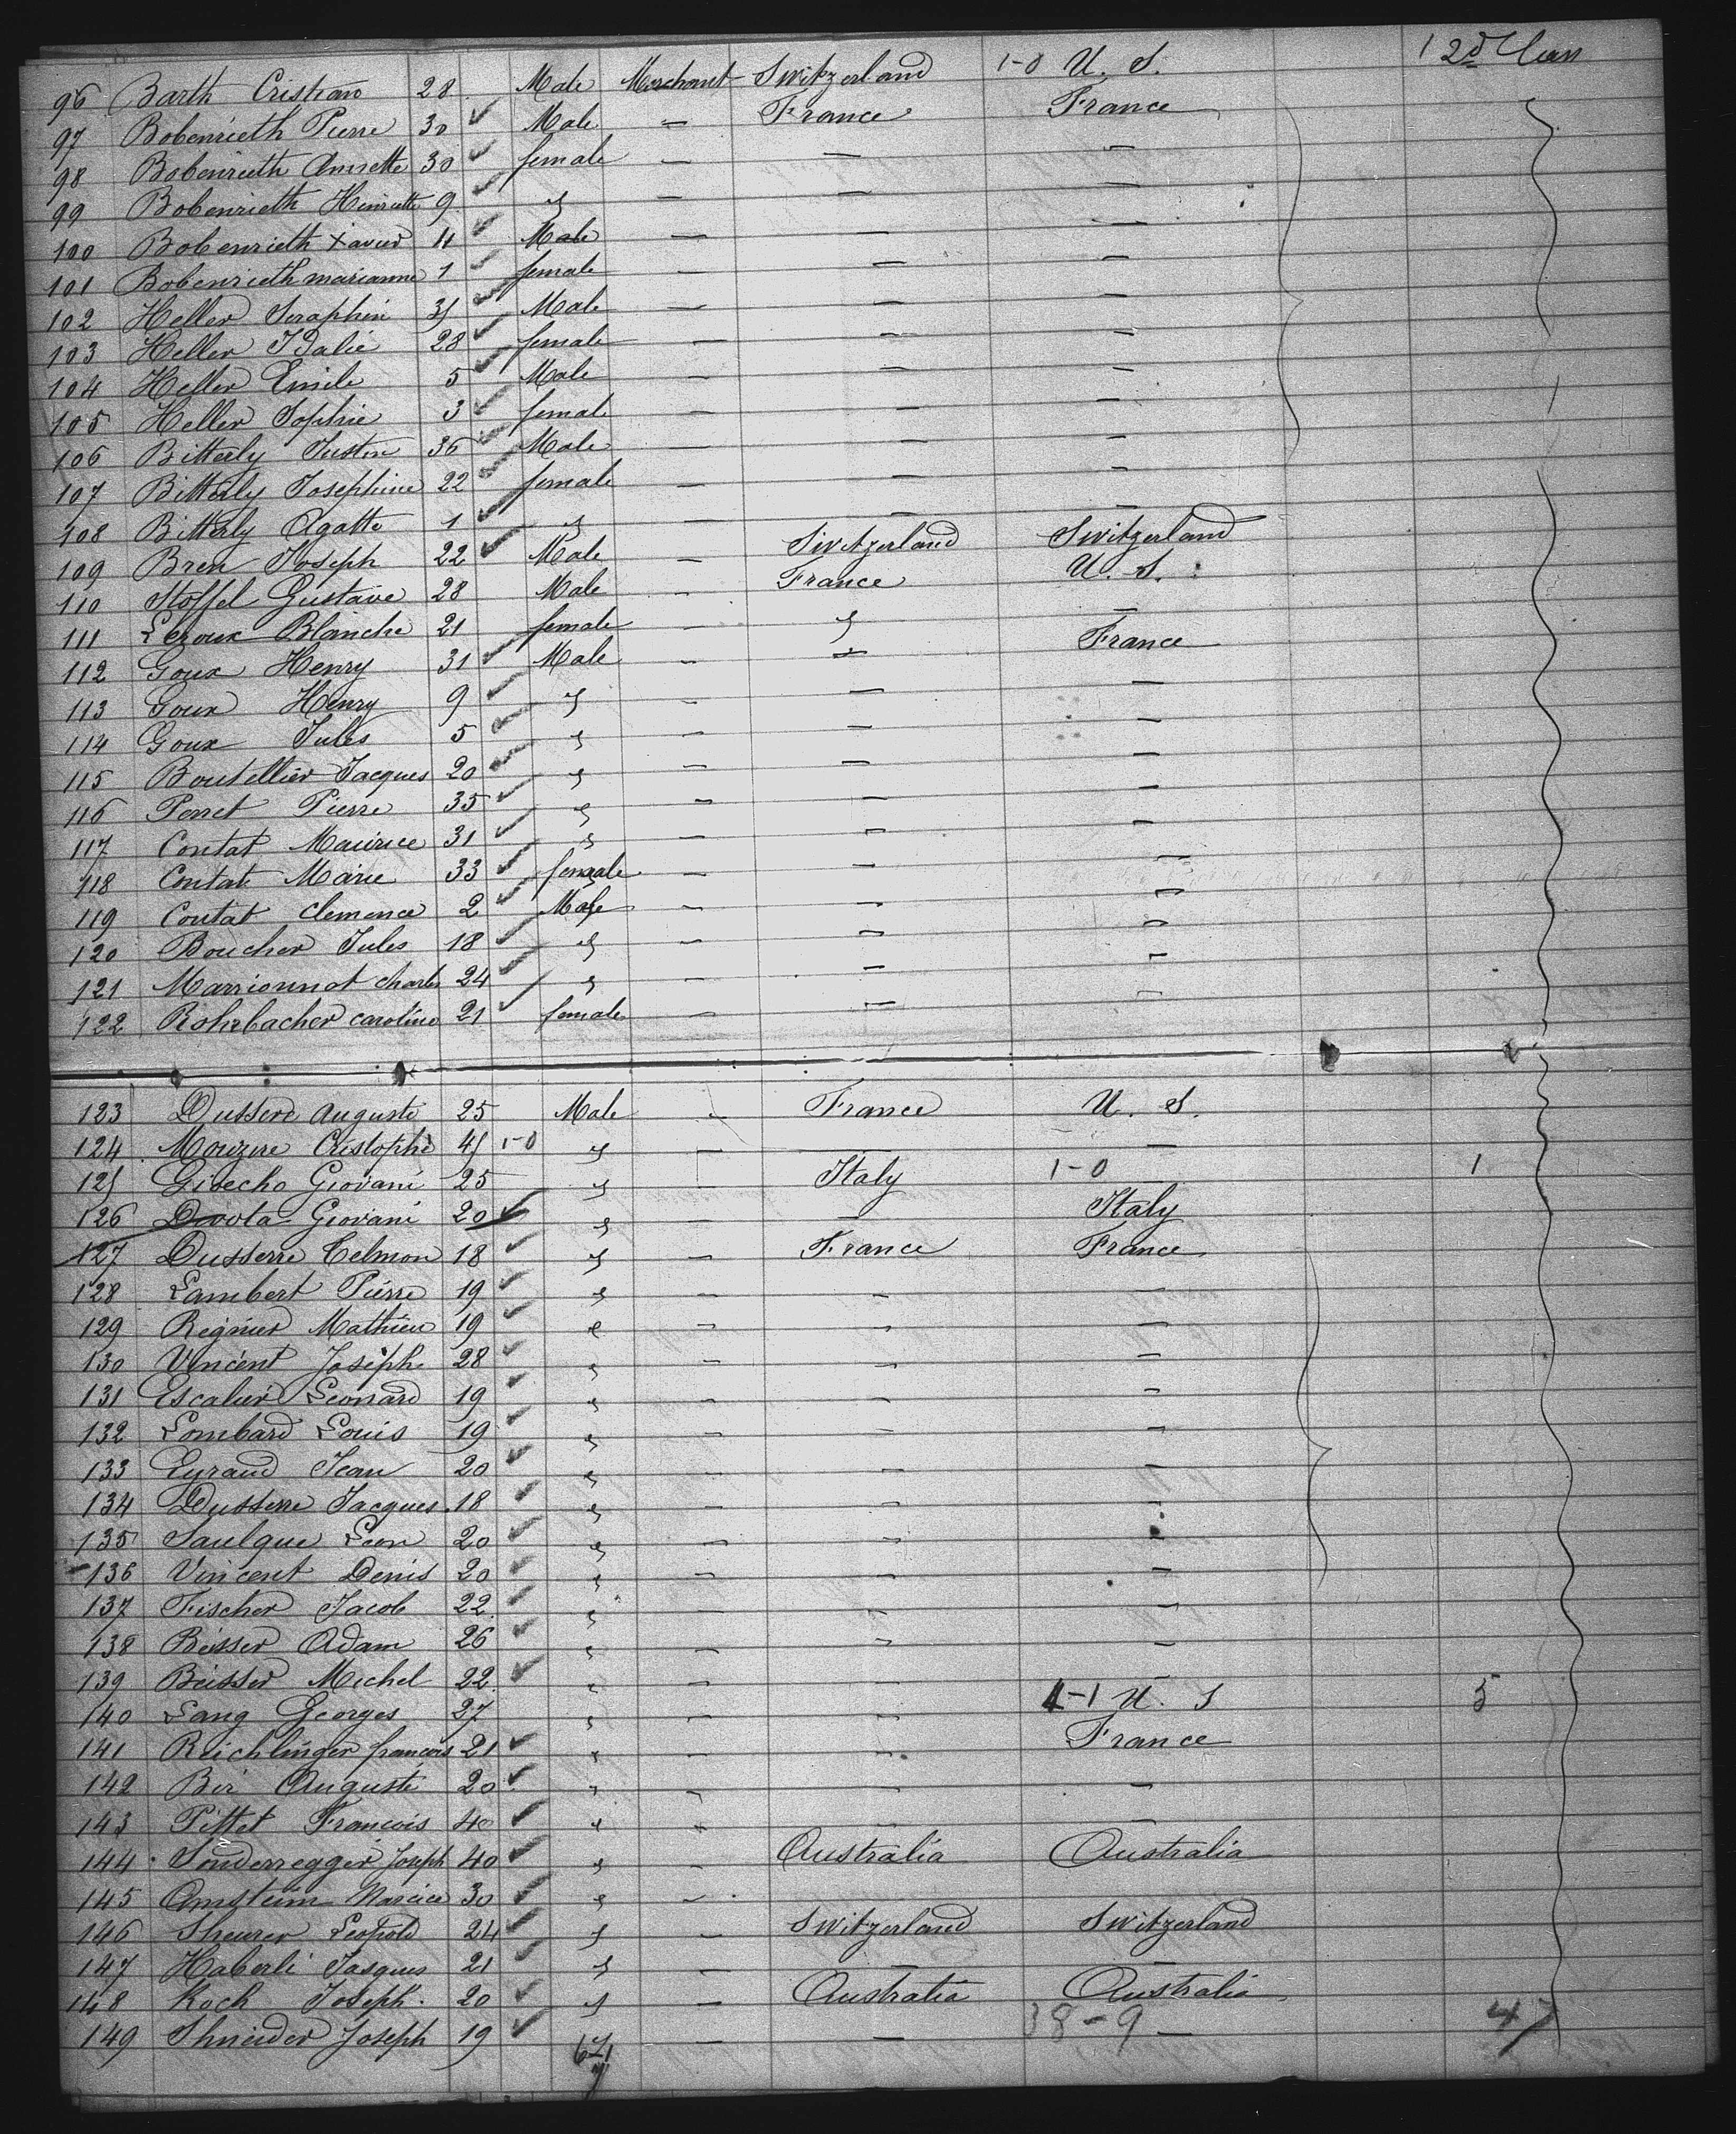 96 Barth Cristian 28 Male Merchant Switzerland 1-0 U. S. 1 2d Clas
97 Bobenrieth Pierre 30 ✓ Male — France France
98 Bobenrieth Annette 30 ✓ female — — —
99 Bobenrieth Henriette 9 ✓ " — — —
100 Bobenrieth Xavier 4 ✓ Male — — —
101 Bobenrieth marianne 1 ✓ female — — —
102 Heller Seraphin 31 ✓ Male — — —
103 Heller Idalie 28 ✓ female — — —
104 Heller Emile 5 ✓ Male — — —
105 Heller Sophie 3 ✓ female — — —
106 Bitterly Justin 36 ✓ Male — — —
107 Bitterly Josephine 22 ✓ female — — —
108 Bitterly Agatte 1 ✓ " — — —
109 Bren Joseph 22 ✓ Male — Switzerland Switzerland
110 Stoffel Gustave 28 Male — France U. S.
111 Leroux Blanche 21 female — " —
112 Goux Henry 31 ✓ Male — — France
113 Goux Henry 9 ✓ " — — —
114 Goux Jules 5 ✓ " — — —
115 Boutellier Jacques 20 ✓ " — — —
116 Perret Pierre 35 ✓ " — — —
117 Contat Maurice 31 ✓ " — — —
118 Contat Marie 33 ✓ female — — —
119 Contat Clemence 2 ✓ Male — — —
120 Boucher Jules 18 ✓ " — — —
121 Marrionnot Charles 24 ✓ " — — —
122 Rohrbacher Caroline 21 ✓ female — — —
123 Dussere Auguste 25 Male - France U. S.
124 Mouzere Cristophe 45 1-0 " — — —
125 Giuecho Giovani 25 " — Italy 1-0 1
126 Devota Giovani 20 ✓ " — — Italy
127 Dusserre Telmon 18 ✓ " — France France
128 Lambert Pierre 19 ✓ " — — —
129 Regnier Mathieu 19 ✓ " — — —
130 Vincent Joseph 28 ✓ " — — —
131 Escalier Leonard 19 ✓ " — — —
132 Lombard Louis 19 ✓ " — — —
133 Eyraud Jean 20 ✓ " — — —
134 Dusserre Jacques 18 ✓ " — — —
135 Saulque Leon 20 ✓ " — — —
136 Vincent Denis 20 ✓ " — — —
137 Fischer Jacob 22 ✓ " — — —
138 Beisser Adam 26 ✓ " — — —
139 Beisser Michel 22 ✓ " — — —
140 Lang Georges 27 " — — 4-1 U. S 5
141 Reichlinger francois 21 ✓ " — — France
142 Bir Auguste 20 ✓ " — — —
143 Pittet Francois 40 ✓ " — — —
144 Sonderregger Joseph 40 ✓ " — Australia Australia
145 Amstein Narcice 30 ✓ " —
146 Sheurer Leopold 24 ✓ " — Switzerland Switzerland
147 Haberli Jasques 21 ✓ " — — —
148 Koch Joseph 20 ✓ " — Australia Australia
149 Shneider Joseph 19 ✓ — — 38-9 — 47